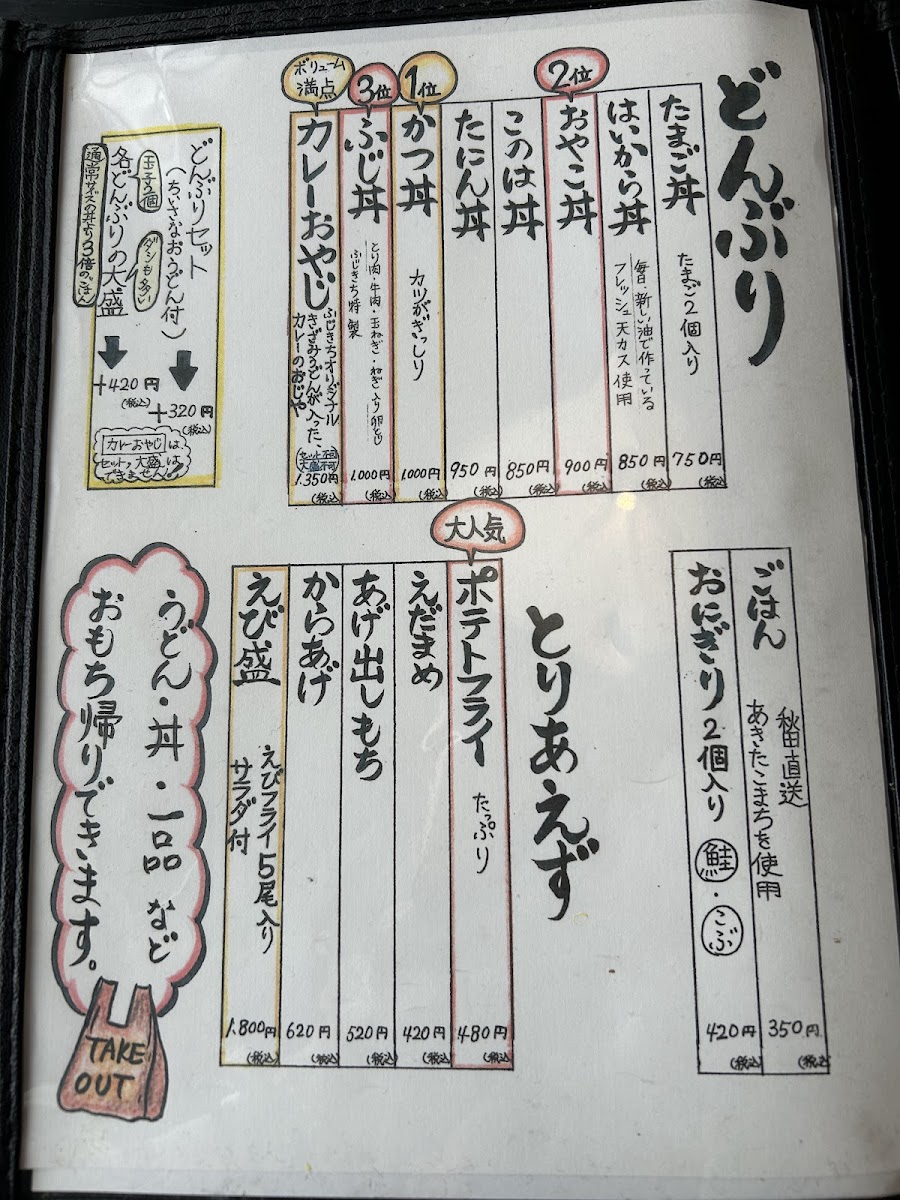 どんぶり
たまご丼
たまご2個入り
750円
(税込)
はいから丼
毎日・新しい油で作っている
フレッシュ天カス使用
850円
(税込)
2位
おやこ丼
900円
(税込)
このは丼
850円
(税込)
たにん丼
950円
(税込)
1位
かつ丼
カツがぎっしり
1.000円
(税込)
3位
ふじ丼
とり肉・牛肉・玉ねぎ・ねぎ入り卵とじ
ふじきち特製
1.000円
(税込)
ボリューム
満点
カレーおやじ
ふじきちオリジナル
きざみうどんが入った、
カレーのおじや
セット不可
大盛不可
1.350円
(税込)
どんぶりセット
(ちいさなおうどん付)
+320円
(税込)
各どんぶりの大盛
玉子3個
ダシも多い
通常サイズの丼より3倍のごはん
+420円
(税込)
カレーおやじは
セット、大盛は
できません!!
ごはん
秋田直送
あきたこまちを使用
350円
(税込)
おにぎり2個入り
鮭・こぶ
420円
(税込)
とりあえず
大人気
ポテトフライ
たっぷり
480円
(税込)
えだまめ
420円
(税込)
あげ出しもち
520円
(税込)
からあげ
620円
(税込)
えび盛
えびフライ5尾入り
サラダ付
1.800円
(税込)
うどん・丼・一品など
おもち帰りできます。
TAKE
OUT